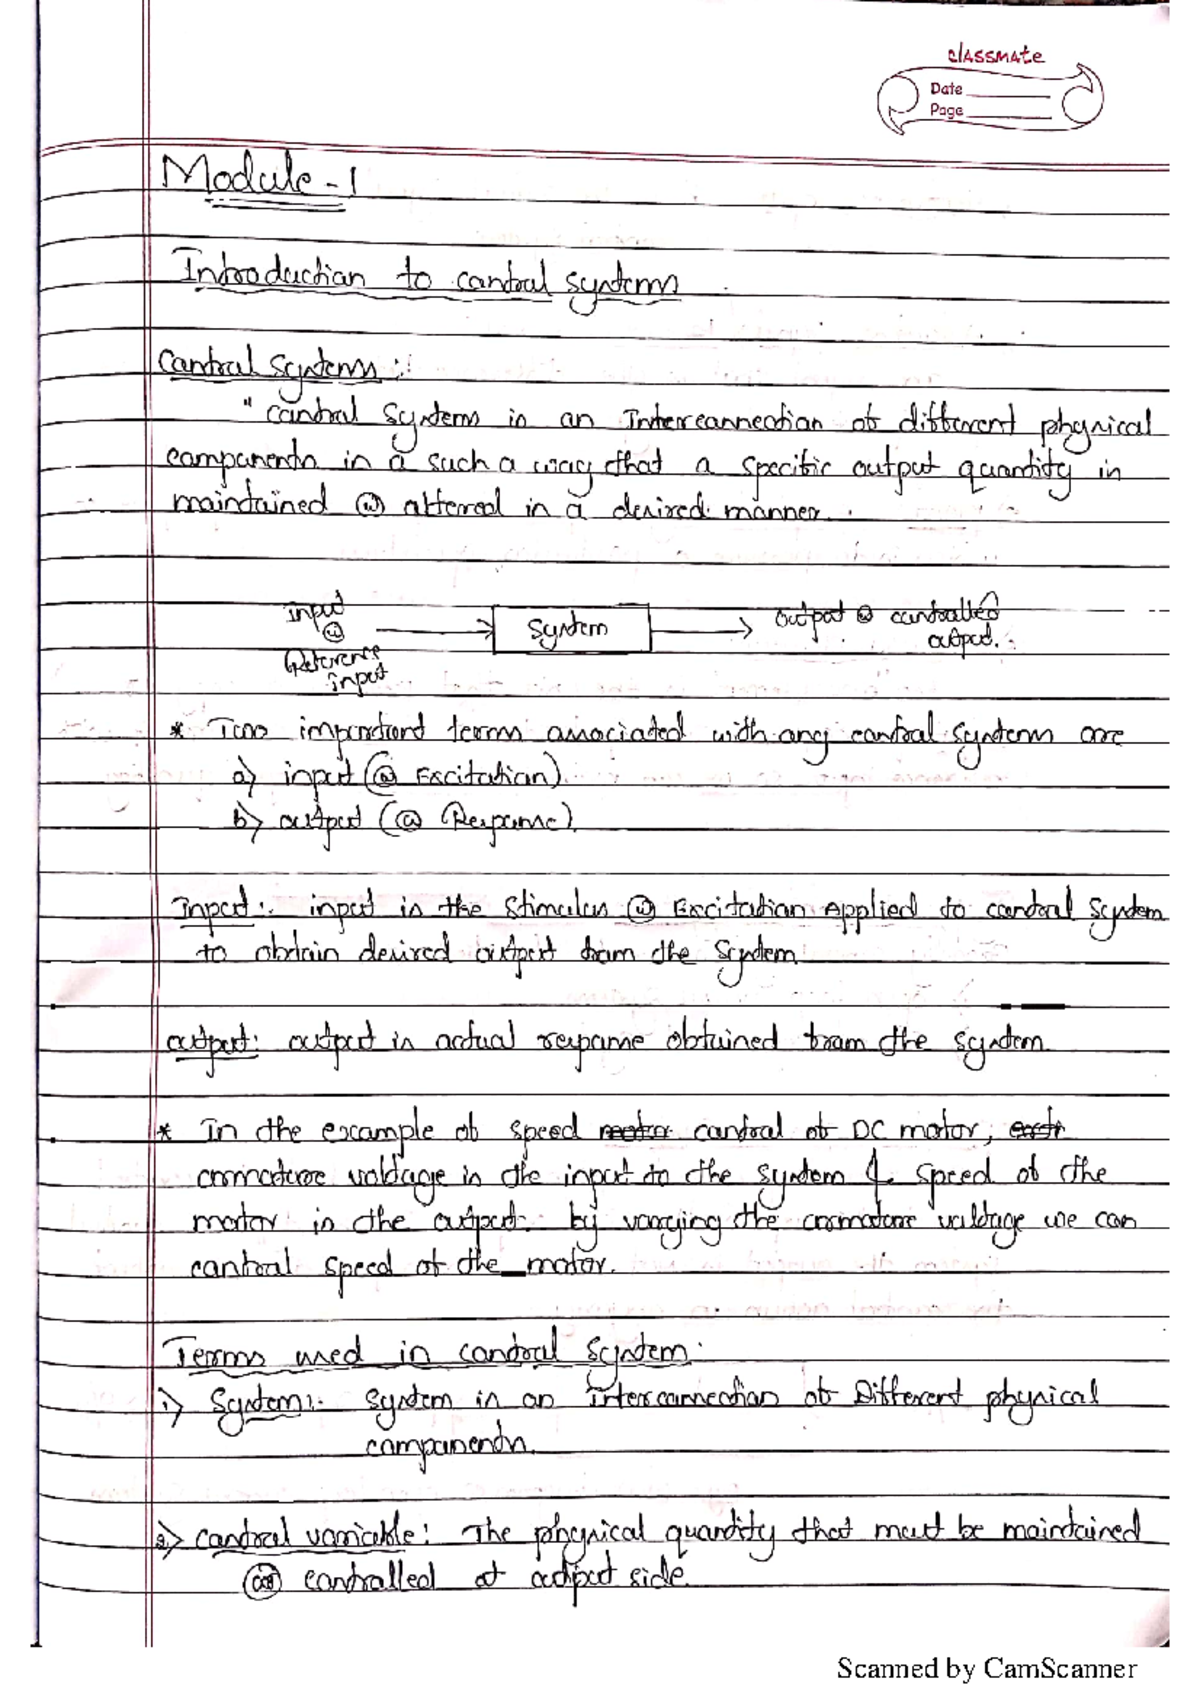 classmate
Date
Page
Module - 1
Introduction to control systems
Control Systems :-
" control systems is an Interconnection of different physical
components in a such a way that a specific output quantity is
maintained (or) altered in a desired manner.
Input
(or)
Reference
input
System
output (or) controlled
output.
* Two important terms associated with any control systems are
a) input (or Excitation)
b) output (or Response).
Input :- input is the Stimulus (or) Excitation Applied to control system
to obtain desired output from the system.
output: output is actual response obtained from the system.
* In the example of speed motor control of DC motor,
armature voltage is the input to the system & speed of the
motor is the output. by varying the armature voltage we can
control speed of the motor.
Terms used in control system:
1) System:- System is an interconnection of Different physical
components.
2) control variable: The physical quantity that must be maintained
(or) controlled at output side.
Scanned by CamScanner